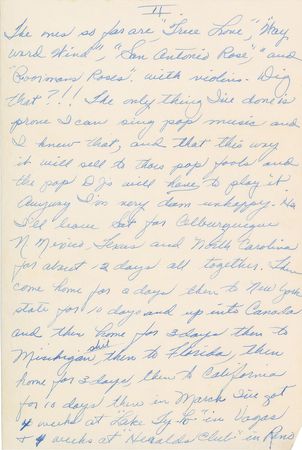 II.
The ones so far are "True Love", "Way
ward Wind", "San Antonio Rose", and
"Poormans Roses". with violins. Dig
that?!!! The only thing I've done is
prove I can sing pop music and
I knew that, and that this way
it will sell to thoes pop fools and
the pop DJs will have to play it.
Anyway I'm very dam unhappy. Ha
I'll leave Sat for Alburquerque
N Mexico, Texas and North Carolina
for about 12 days all together. Then
come home for 2 days then to New York
state for 10 days and up into Canada
and then home for 3 days then to
Mishigan shit then to Florida, then
home for 3 days, then to California
for 10 days then in March I've got
4 weeks at "Lake Ty-ho" in Vagas
+ 4 weeks at Heralds Club" in Reno